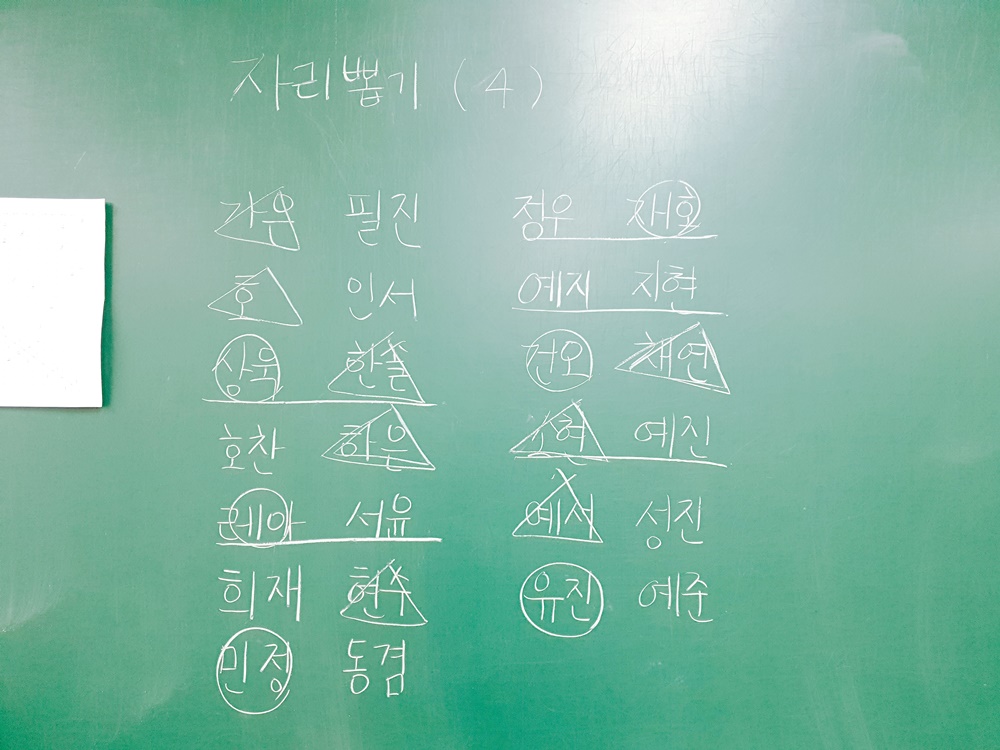 자리뽑기 (4)
가은 필진
호 인서
상욱 한솔
호찬 하은
레아 서윤
희재 현수
민정 동겸
정우 재호
예지 지현
건오 채연
소현 예진
예서 성진
유진 예준